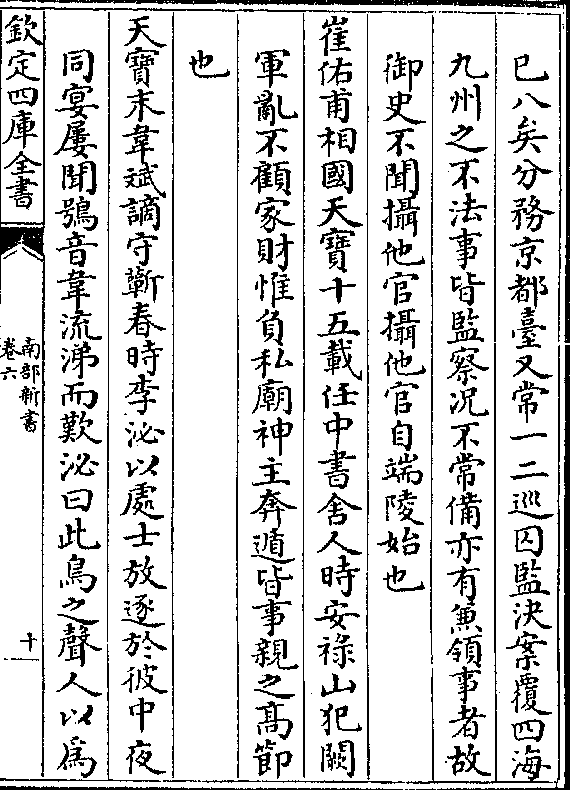 已八矣分務京都臺又常一二巡囚監決案覆四海
九州之不法事皆監察况不常備亦有兼領事者故
御史不聞攝他官攝他官自端陵始也
崔佑甫相國天寶十五載任中書舍人時安祿山犯闕
軍亂不顧家財惟負私廟神主奔遁皆事親之髙節
也
天寶末韋斌謫守蘄春時李泌以處士放逐於彼中夜
同宴屢聞鴞音韋流涕而歎泌曰此鳥之聲人以為
欽定四庫全書
南部新書
卷六
十